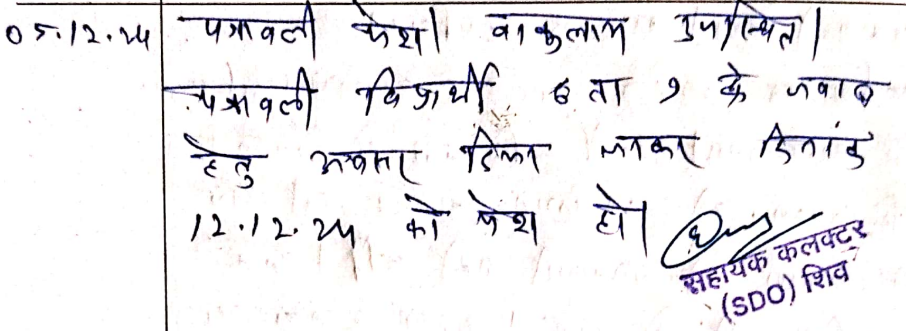 05.12.24 पत्रावली पेश। वकुलाय उपस्थित।
पत्रावली विप्रार्थी 6 ता 9 के जवाब
हेतु अवसर दिया जाकर दिनांक
12.12.24 को पेश हो।
सहायक कलक्टर
(SDO) शिव